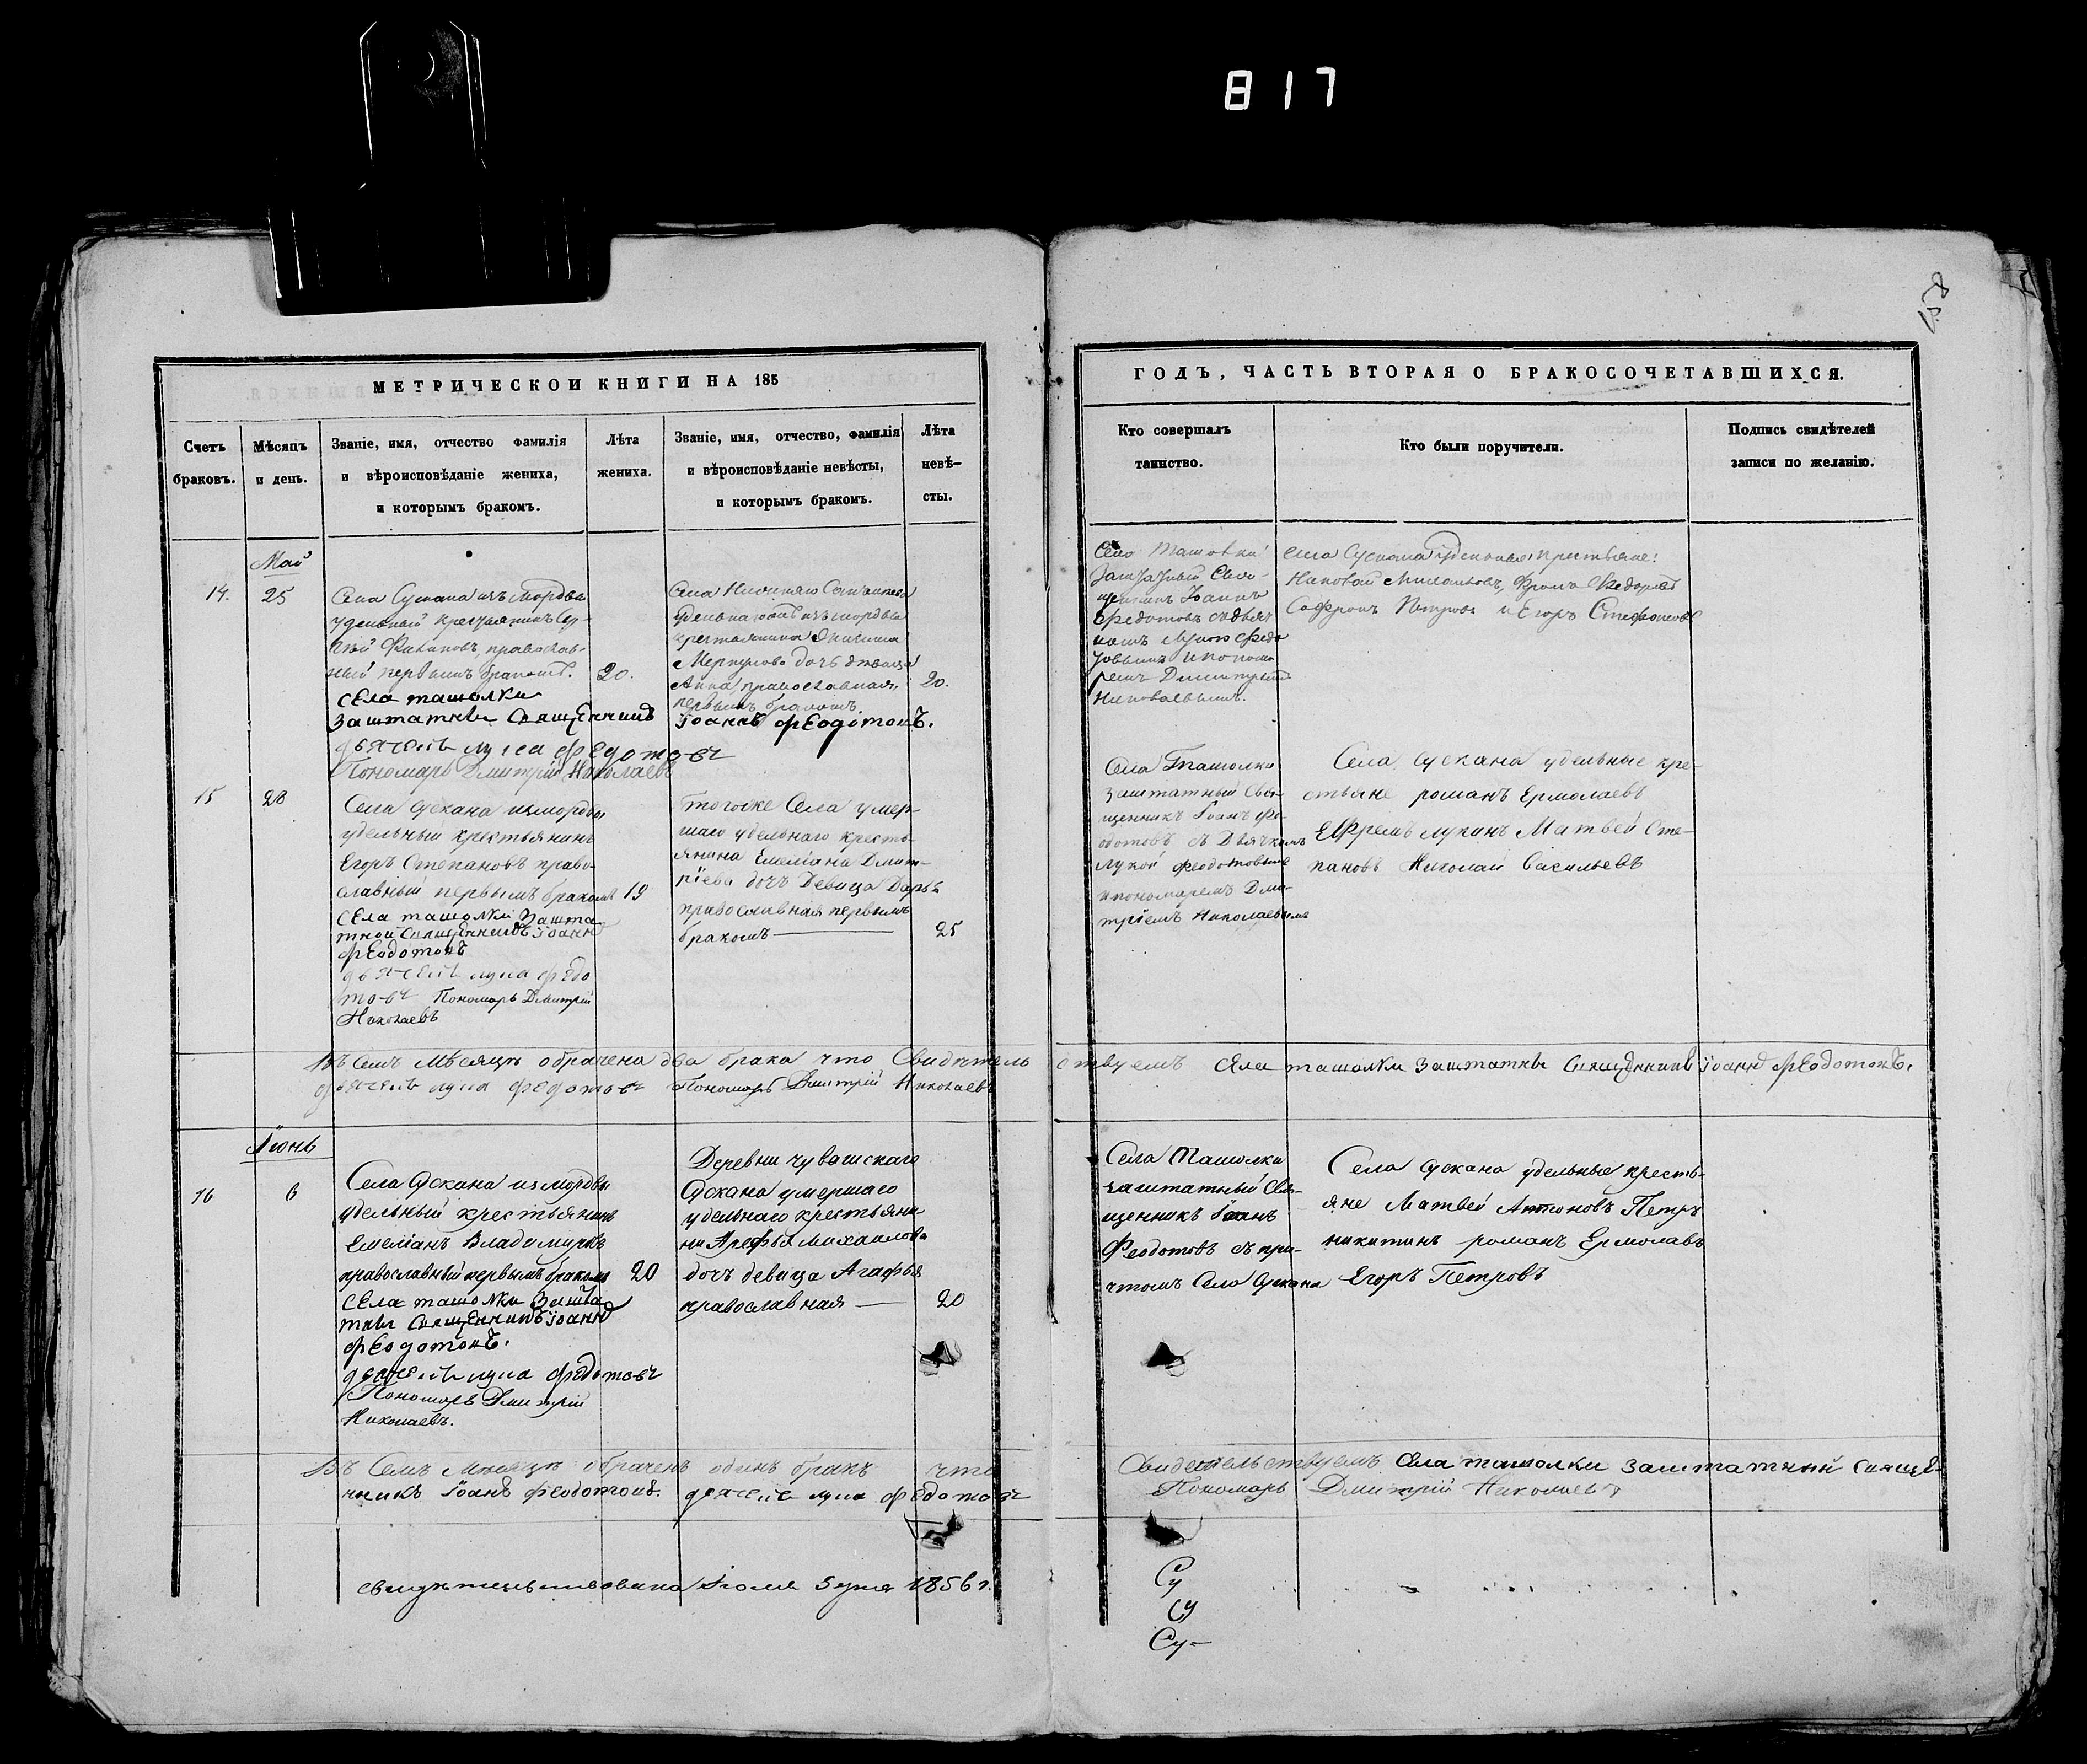 817
158
МЕТРИЧЕСКОИ КНИГИ НА 185
Счетъ браковъ.
Мѣсяцъ и день.
Званіе, имя, отчество фамилія
и вѣроисповѣданіе жениха,
и которымъ бракомъ.
Лѣта
жениха.
Званіе, имя, отчество, фамилія
и вѣроисповѣданіе невѣсты,
и которымъ бракомъ.
Лѣта
невѣ-
сты.
Май
14.
25
Села Сускана изъ мордвы
удельный крестьянинъ
православ-
ный первымъ бракомъ.
20.
села ташолки
заштатны священникъ іоаннъ феодотовъ.
дьячекъ лука федотовъ
Пономарь Дмитрій Николаевъ
удельнаго изъ мордвы
крестьянина
Меркулова дочь девица
Анна, православная,
первымъ бракомъ.
20.
15
28
Села Сускана измордвы
удельныи крестьянинъ
Егоръ Степановъ право-
славный первымъ бракомъ
19
села ташолки зашта
тной священникъ іоаннъ
феодотовъ
дьячекъ лука федо
товъ Пономарь Дмитрій
Николаевъ
тогоже Села умер-
шаго удельнаго кресть-
янина Емеліана Дмит-
ріева дочь Девица Дарья
православная первымъ
бракомъ
25
Въ семъ Мѣсяцѣ обрачена два брака что Свидѣтель
дьячекъ лука федотовъ Пономарь Дмитрій Николаевъ
Іюнь
16
6
Села Сускана измордвы
удельный крестьянинъ
Емеліанъ Владимировъ
православный первымъ бракомъ
20
села ташолки зашта
тны священникъ іоаннъ
феодотовъ.
дьячекъ лука федотовъ
Пономарь Дмитрій
Николаевъ.
Деревни чувашскаго
Сускана умершаго
удельнаго крестьяни
на Арефья Михаилова
дочь девица Агафья
православная
20
Въ Семъ Мѣсяцѣ обраченъ одинъ бракъ что
никъ іоанъ феодотовъ. дьячекъ лука федотовъ
свидѣтельствована Іюля 5 дня 1856 г.
ГОДЪ, ЧАСТЬ ВТОРАЯ О БРАКОСОЧЕТАВШИХСЯ.
Кто совершалъ
таинство.
Кто были поручители.
Подпись свидѣтелей
записи по желанію.
Села Ташолки
Заштатный Свя-
щенникъ Іоаннъ
Федотовъ съ дьяч
комъ Лукою Федо
товымъ и понома
ремъ Дмитріемъ
Николаевымъ.
Села Сускана удельные крестьяне:
Николай Михаиловъ, Фрола Федоровъ
Софронъ Петровъ и Егоръ Стефановъ
Села Ташолки
заштатный Свя-
щенникъ Іоанъ Фе-
одотовъ съ Дьячкомъ
лукой феодотовымъ
и пономаремъ Дми-
тріемъ Николаевымъ
Села Сускана удельные кре-
стьяне романъ Ермолаевъ
Ефремъ лукинъ Матвей Сте-
пановъ Николай Васильевъ
ствуемъ села ташолки заштатны священникъ іоаннъ феодотовъ.
Села Ташолки
заштатный Свя-
щенникъ Іоанъ
Феодотовъ съ при-
чтомъ Села Сускана
Села Сускана удельные кресть-
яне Матвей Антоновъ Петръ
никитинъ романъ Ермолаевъ
Егоръ Петровъ
Свидетельствуемъ села ташолки заштатный свяще-
Пономарь Дмитрій Николаевъ
Су
Су
Су-